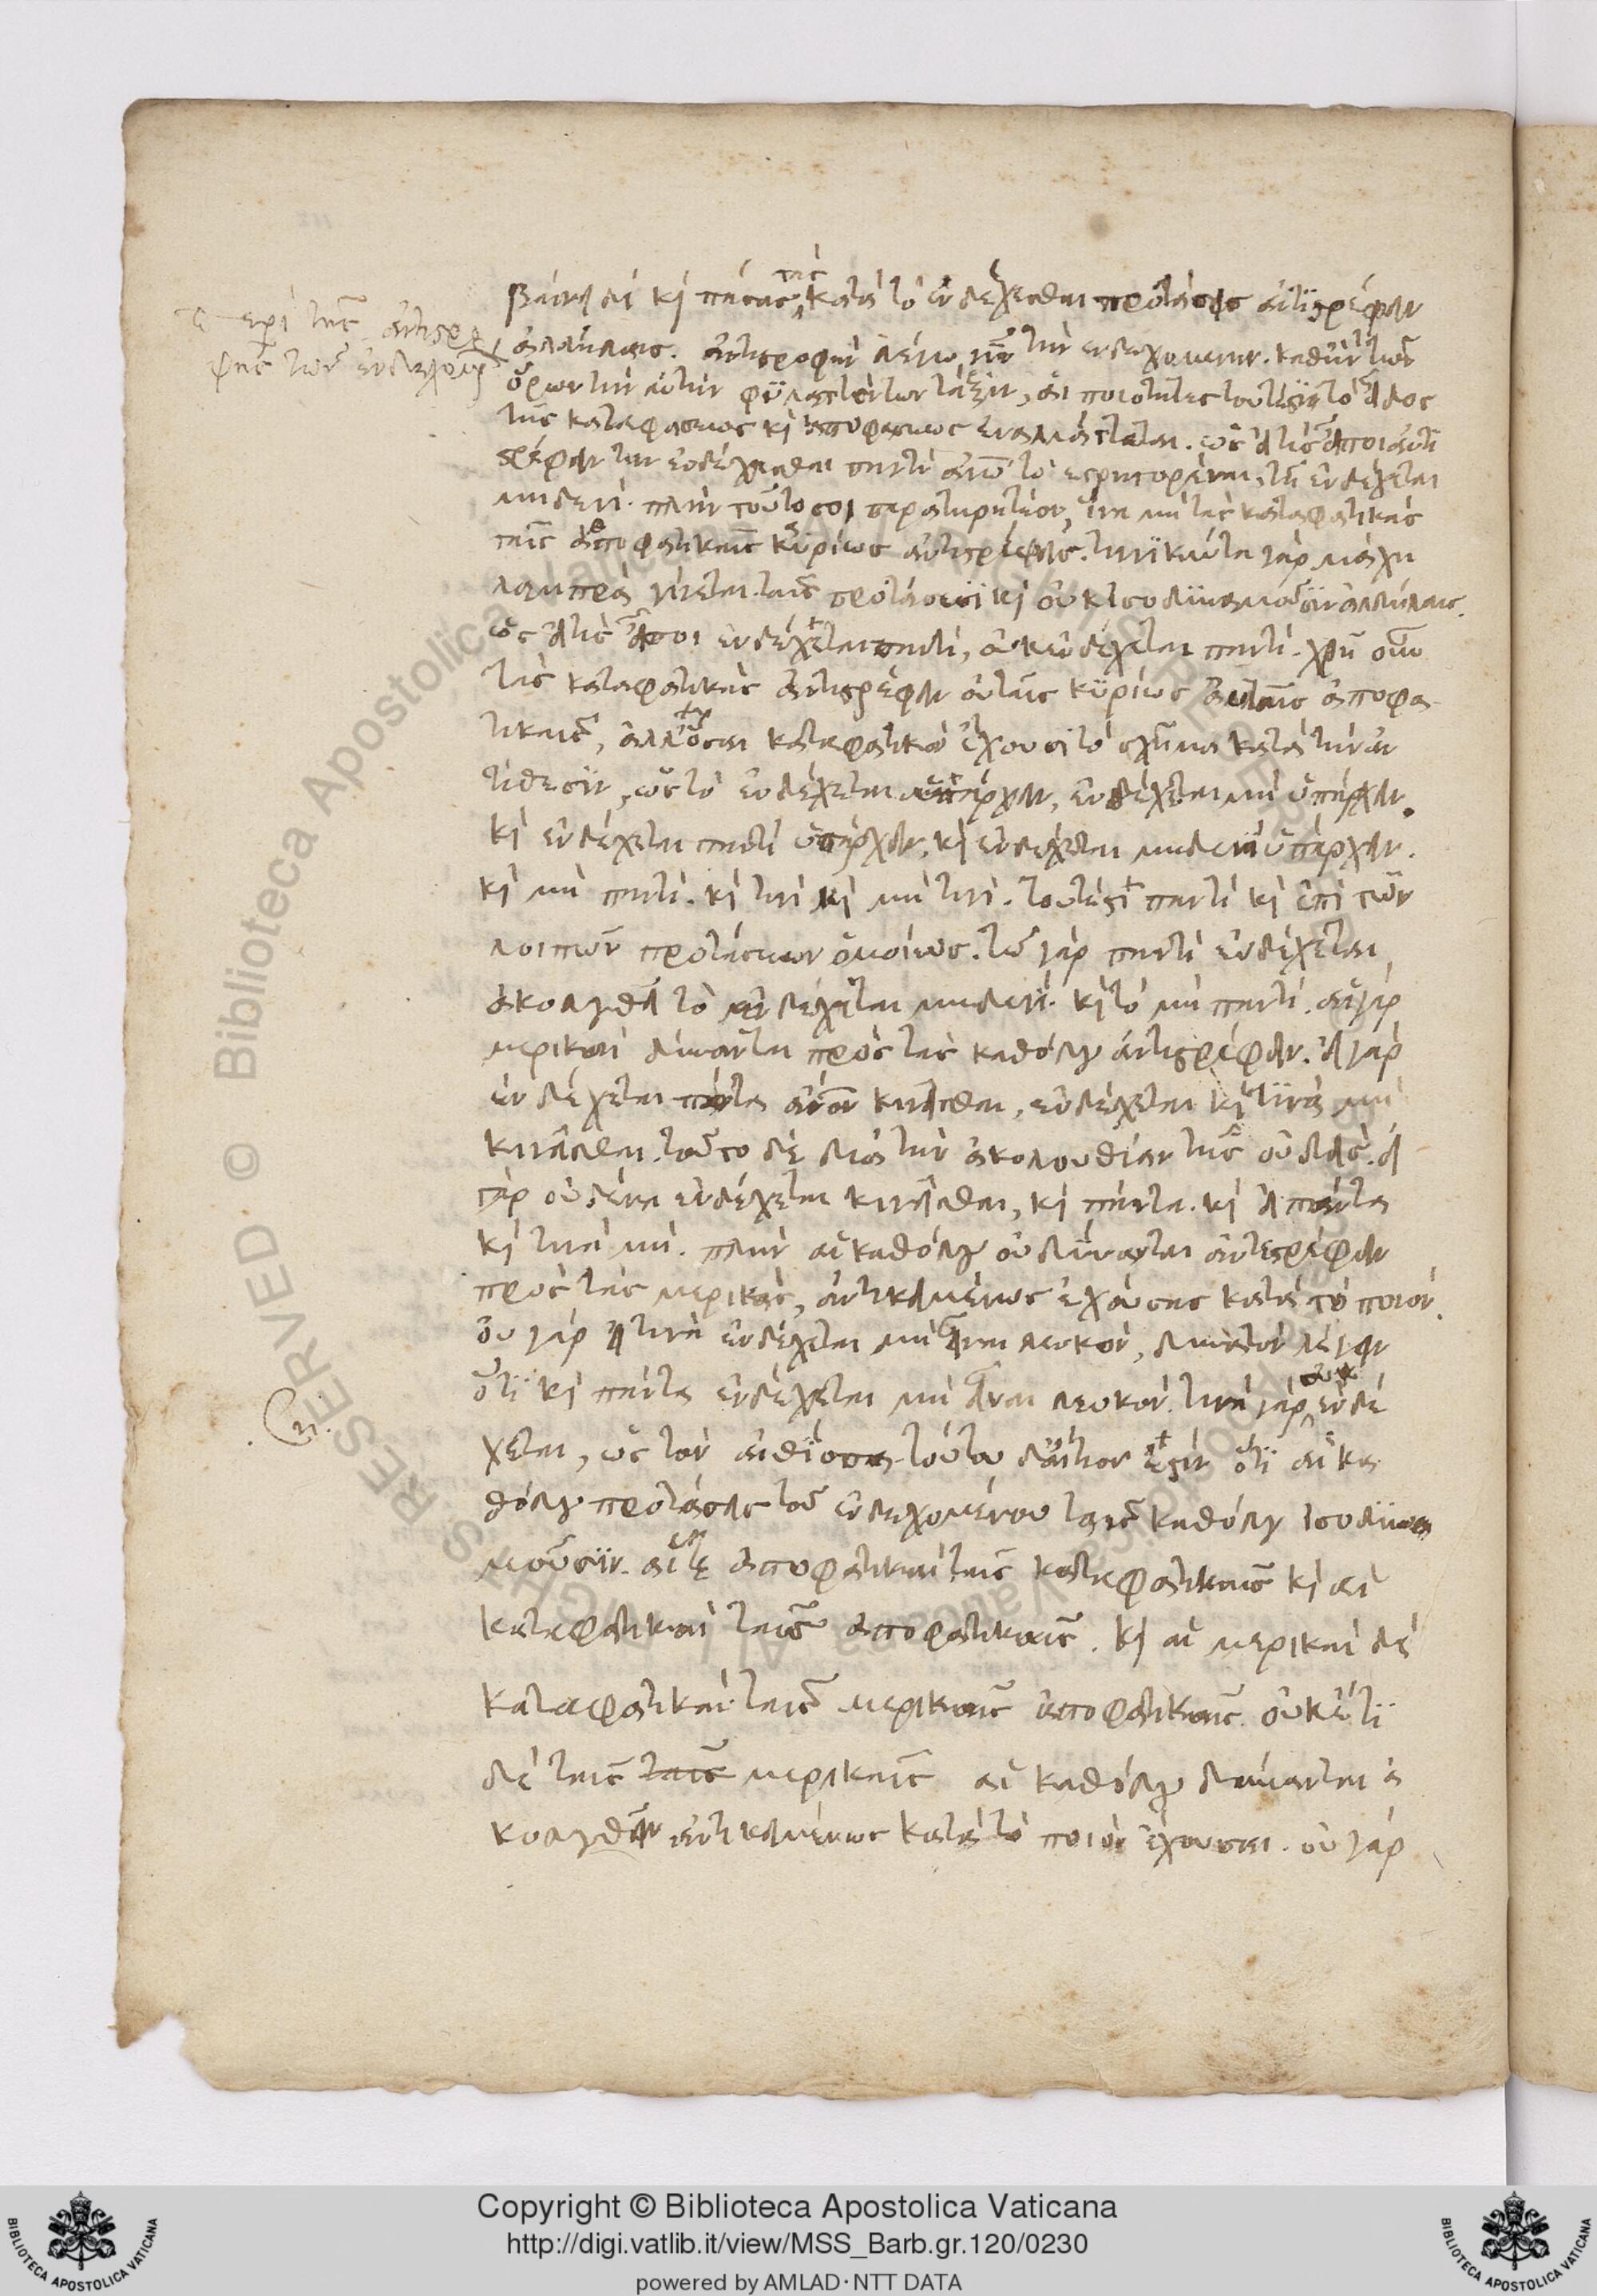 Περὶ τῆς ἀντιστρο
φῆς τῶν ἐνδεχομένων
βαίνει δὲ καὶ πάσας τὰς κατὰ τὸ ἐνδέχεσθαι προτάσεις ἀντιστρέφειν
ἀλλήλαις. ἀντιστροφὴν λέγω νῦν τὴν ἐνδεχομένην. καθ' ἣν τῶν
ὅρων τὴν αὐτὴν φυλαττόντων τάξιν, αἱ ποιότητες τουτέστι τὸ εἶδος
τῆς καταφάσεως καὶ ἀποφάσεως ἐναλλάττεται. ὡς εἴ τις εἴποι ἀντι
στρέφειν τὴν ἐνδέχεσθαι παντὶ ἀνθρώπῳ τὸ ἐγρηγορέναι, τῇ ἐνδέχεται
μηδενί. πλὴν τοῦτο σοι παρατηρητέον, ἵνα μὴ τὰς καταφατικὰς
ταῖς ἀποφατικαῖς κυρίως ἀντιστρέφῃς. τηνικαῦτα γὰρ μάχη
λαμπρὰ γίνεται ταῖς προτάσεσι καὶ οὐκ ἰσοδυναμοῦσιν ἀλλήλαις.
ὡς εἴ τις εἴποι ἐνδέχεται παντί, οὐκ ἐνδέχεται παντί. χρὴ οὖν
τὰς καταφατικὰς ἀντιστρέφειν οὐ ταῖς κυρίως ἀποφα
τικαῖς, ἀλλ' ὅσαι καταφατικὸν ἔχουσι τὸ σχῆμα κατὰ τὴν ἀν
τίθεσιν, ὡς τὸ ἐνδέχεται ὑπάρχειν, ἐνδέχεται μὴ ὑπάρχειν.
καὶ ἐνδέχεται παντὶ ὑπάρχειν, καὶ ἐνδέχεται μηδενὶ ὑπάρχειν.
καὶ μὴ παντί. καὶ τινὶ καὶ μὴ τινί. τουτέστι παντὶ καὶ ἐπὶ τῶν
λοιπῶν προτάσεων ὁμοίως. τῷ γὰρ παντὶ ἐνδέχεται
ἀκολουθεῖ τὸ ἐνδέχεται μηδενί. καὶ τὸ μὴ παντί. αἱ γὰρ
μερικαὶ δύνανται πρὸς τὰς καθόλου ἀντιστρέφειν. εἰ γὰρ
ἐνδέχεται πάντα ἄνθρωπον κινεῖσθαι, ἐνδέχεται καὶ τινὰ μὴ
κινεῖσθαι. τοῦτο δὲ διὰ τὴν ἀκολουθίαν τῆς οὐδείς. εἰ
γὰρ οὐδένα ἐνδέχεται κινεῖσθαι, καὶ πάντα. καὶ εἰ πάντα
καὶ τινὰ μή. πλὴν αἱ καθόλου οὐ δύνανται ἀντιστρέφειν
πρὸς τὰς μερικάς, ἀντικειμένως ἐχούσας κατὰ τὸ ποιόν.
οὐ γὰρ εἰ τινὰ ἐνδέχεται μὴ εἶναι λευκόν, δυνατὸν λέγειν
ὅτι καὶ πάντα ἐνδέχεται μὴ εἶναι λευκόν. τινὰ γὰρ οὐκ ἐνδέ
χεται, ὡς τὸν αἰθίοπα. τούτου δ' αἴτιον ἐστὶν ὅτι αἱ κα
θόλου προτάσεις τοῦ ἐνδεχομένου ταῖς καθόλου ἰσοδυνα
μοῦσιν. αἱ ἀποφατικαὶ ταῖς καταφατικαῖς καὶ αἱ
καταφατικαὶ ταῖς ἀποφατικαῖς. καὶ αἱ μερικαὶ δὲ
καταφατικαὶ ταῖς μερικαῖς ἀποφατικαῖς. οὐκέτι
δὲ ταῖς ταῖς μερικαῖς αἱ καθόλου δύνανται ἀ
κολουθεῖν ἀντικειμένως κατὰ τὸ ποιὸν ἔχουσαι. οὐ γὰρ
Copyright © Biblioteca Apostolica Vaticana
http://digi.vatlib.it/view/MSS_Barb.gr.120/0230
powered by AMLAD·NTT DATA